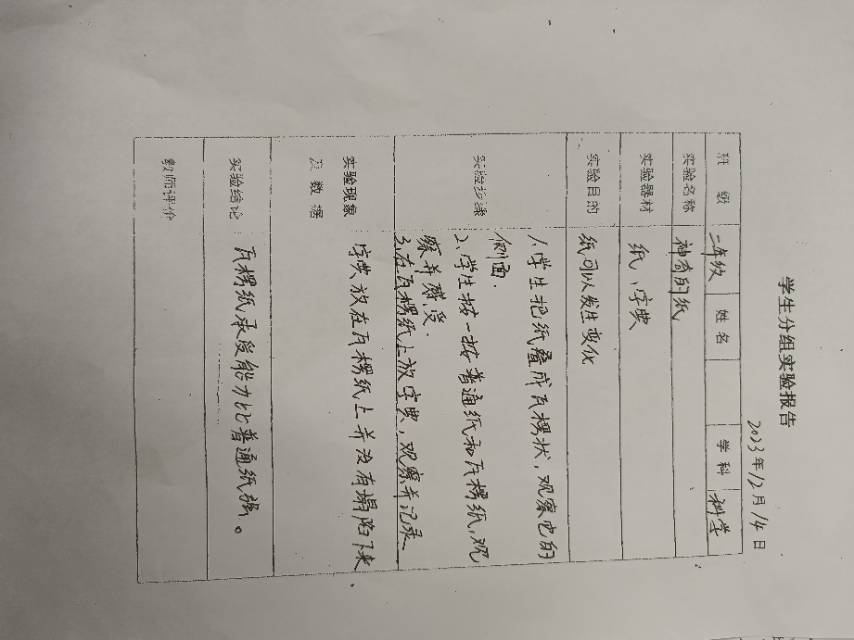 学生分组实验报告
2023年12月14日
班级 二年级 姓名 学科 科学
实验名称 神奇的纸
实验器材 纸、字典
实验目的 纸可以发生变化
实验步骤 1.学生把纸叠成瓦楞状,观察它的
侧面.
2.学生按一按普通纸和瓦楞纸,观
察并感受.
3.在瓦楞纸上放字典,观察并记录
实验现象
及数据
字典放在瓦楞纸上并没有塌陷下来
实验结论: 瓦楞纸承受能力比普通纸强。
教师评价